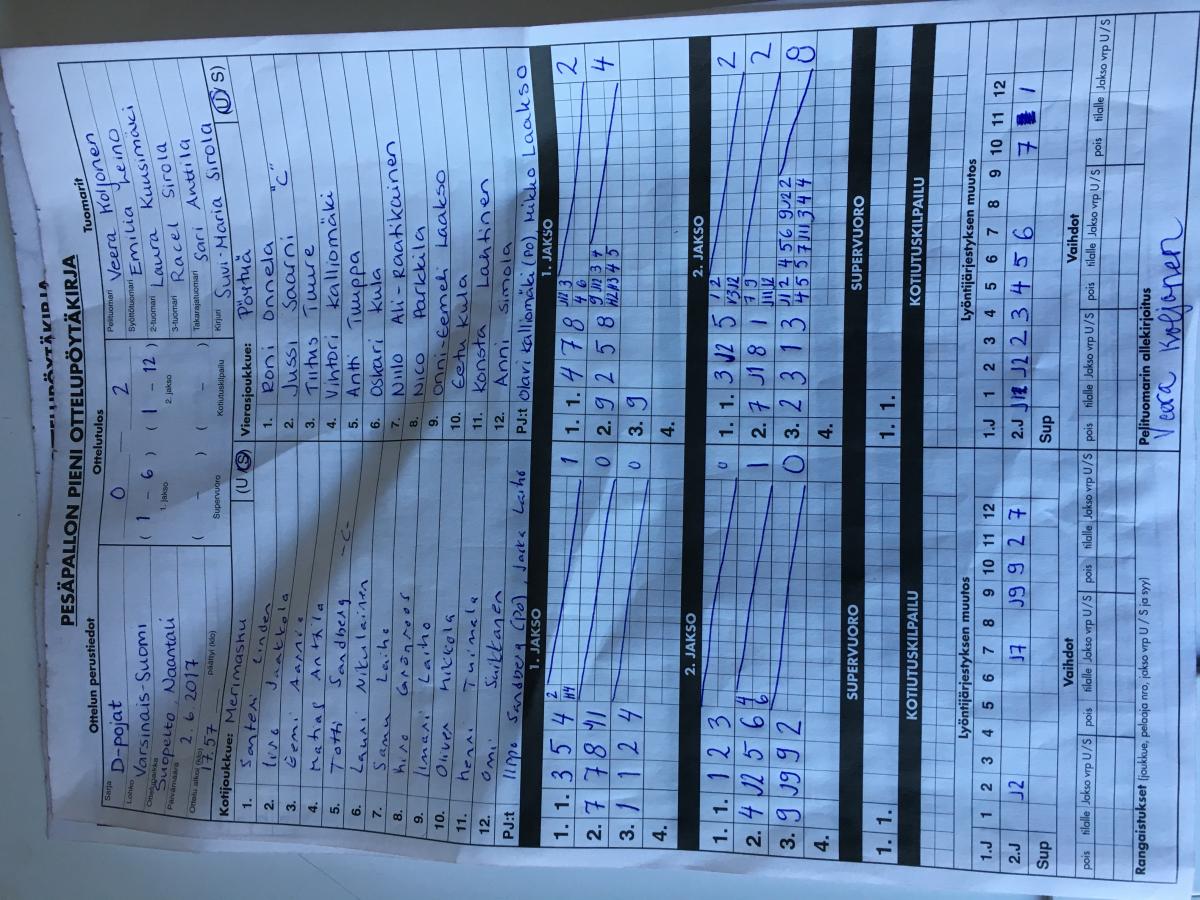 PESÄPALLON PIENI OTTELUPÖYTÄKIRJA
Ottelun perustiedot
Ottelutulos
Tuomarit
Sarja D-pojat
Lohko Varsinais-Suomi
Ottelupaikka Suopelto, Naantali
Päivämäärä 2.6.2017
Ottelu alkoi (klo) 7.57 päättyi (klo)
0 2
( 1 - 6 ) ( 1 - 12 )
1. jakso 2. jakso
( - ) ( - )
Supervuoro Kotiutuskilpailu
Pelituomari Veera Koljonen
Syöttötuomari Emilia Leino
2-tuomari Laura Kuusimäki
3-tuomari Racel Sirola
Takarajatuomari Sari Anttila
Kirjuri Suvi-Maria Sirola
Kotijoukkue: Merimasku (U/S)
1. Santeri Linden
2. Iiro Jaakkola
3. Eemi Aarnio
4. Matias Anttila
5. Totti Sandberg -C-
6. Lauri Nikulainen
7. Samu Laiho
8. Grönroos
9. Ilmari Laiho
10. Oliver Hilkkola
11. Henri Tuimala
12. Omi Suikkanen
PJ:t Ilppo Sandberg (PO), Jarka Laiho
Vierasjoukkue: Pöytyä (U/S)
1. Roni Onnela "C"
2. Jussi Saarni
3. Tuure
4. Vihtori Kalliomäki
5. Antti Tuuppa
6. Oskari Kula
7. Niilo Ali-Raatikainen
8. Nico Parkkila
9. Onni-Eemeli Laakso
10. Eetu Kula
11. Konsta Lahtinen
12. Anni Simola
PJ:t Olavi Kalliomäki (PO), Mikko Laakso
1. JAKSO
1. 1. 3 5 4 2 1
2. 7 7 8 0
3. 1 1 2 4 0
4.
1. JAKSO
1. 1. 4 7 8 2
2. 9 2 5 8 4
3. 9
4.
2. JAKSO
1. 1. 1 2 3 0
2. 4 J2 5 6 4 6 1
3. 9 J9 9 2 0
4.
2. JAKSO
1. 1. 3 J2 5 2
2. 7 J1 8 1 2
3. 2 3 1 3 8
4.
SUPERVUORO
1. 1.
SUPERVUORO
1. 1.
KOTIUTUSKILPAILU
KOTIUTUSKILPAILU
Lyöntijärjestyksen muutos
1 2 3 4 5 6 7 8 9 10 11 12
1.J
2.J J2 J7 J9 9 2 7
Sup
Lyöntijärjestyksen muutos
1 2 3 4 5 6 7 8 9 10 11 12
1.J
2.J J2 2 3 4 5 6 7 1
Sup
Vaihdot
pois tilalle Jakso vrp U/S pois tilalle Jakso vrp U/S pois tilalle Jakso vrp U/S
Vaihdot
pois tilalle Jakso vrp U/S pois tilalle Jakso vrp U/S pois tilalle Jakso vrp U/S
Rangaistukset (joukkue, pelaaja nro, jakso vrp U / S ja syy)
Pelituomarin allekirjoitus
Veera Koljonen